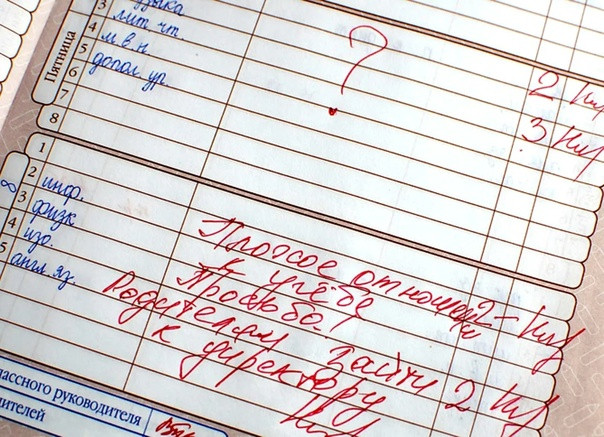 3 музыка
4 лит. чт.
5 м. в. н.
6 допол. ур.
7
8
Пятница
?
2
3
1
2 инф.
3 физк
4 изо.
5 англ. яз.
Плохое отношение 2-
к учёбе
Просьба!
Родителям зайти 2
к директору
лассного руководителя
дителей